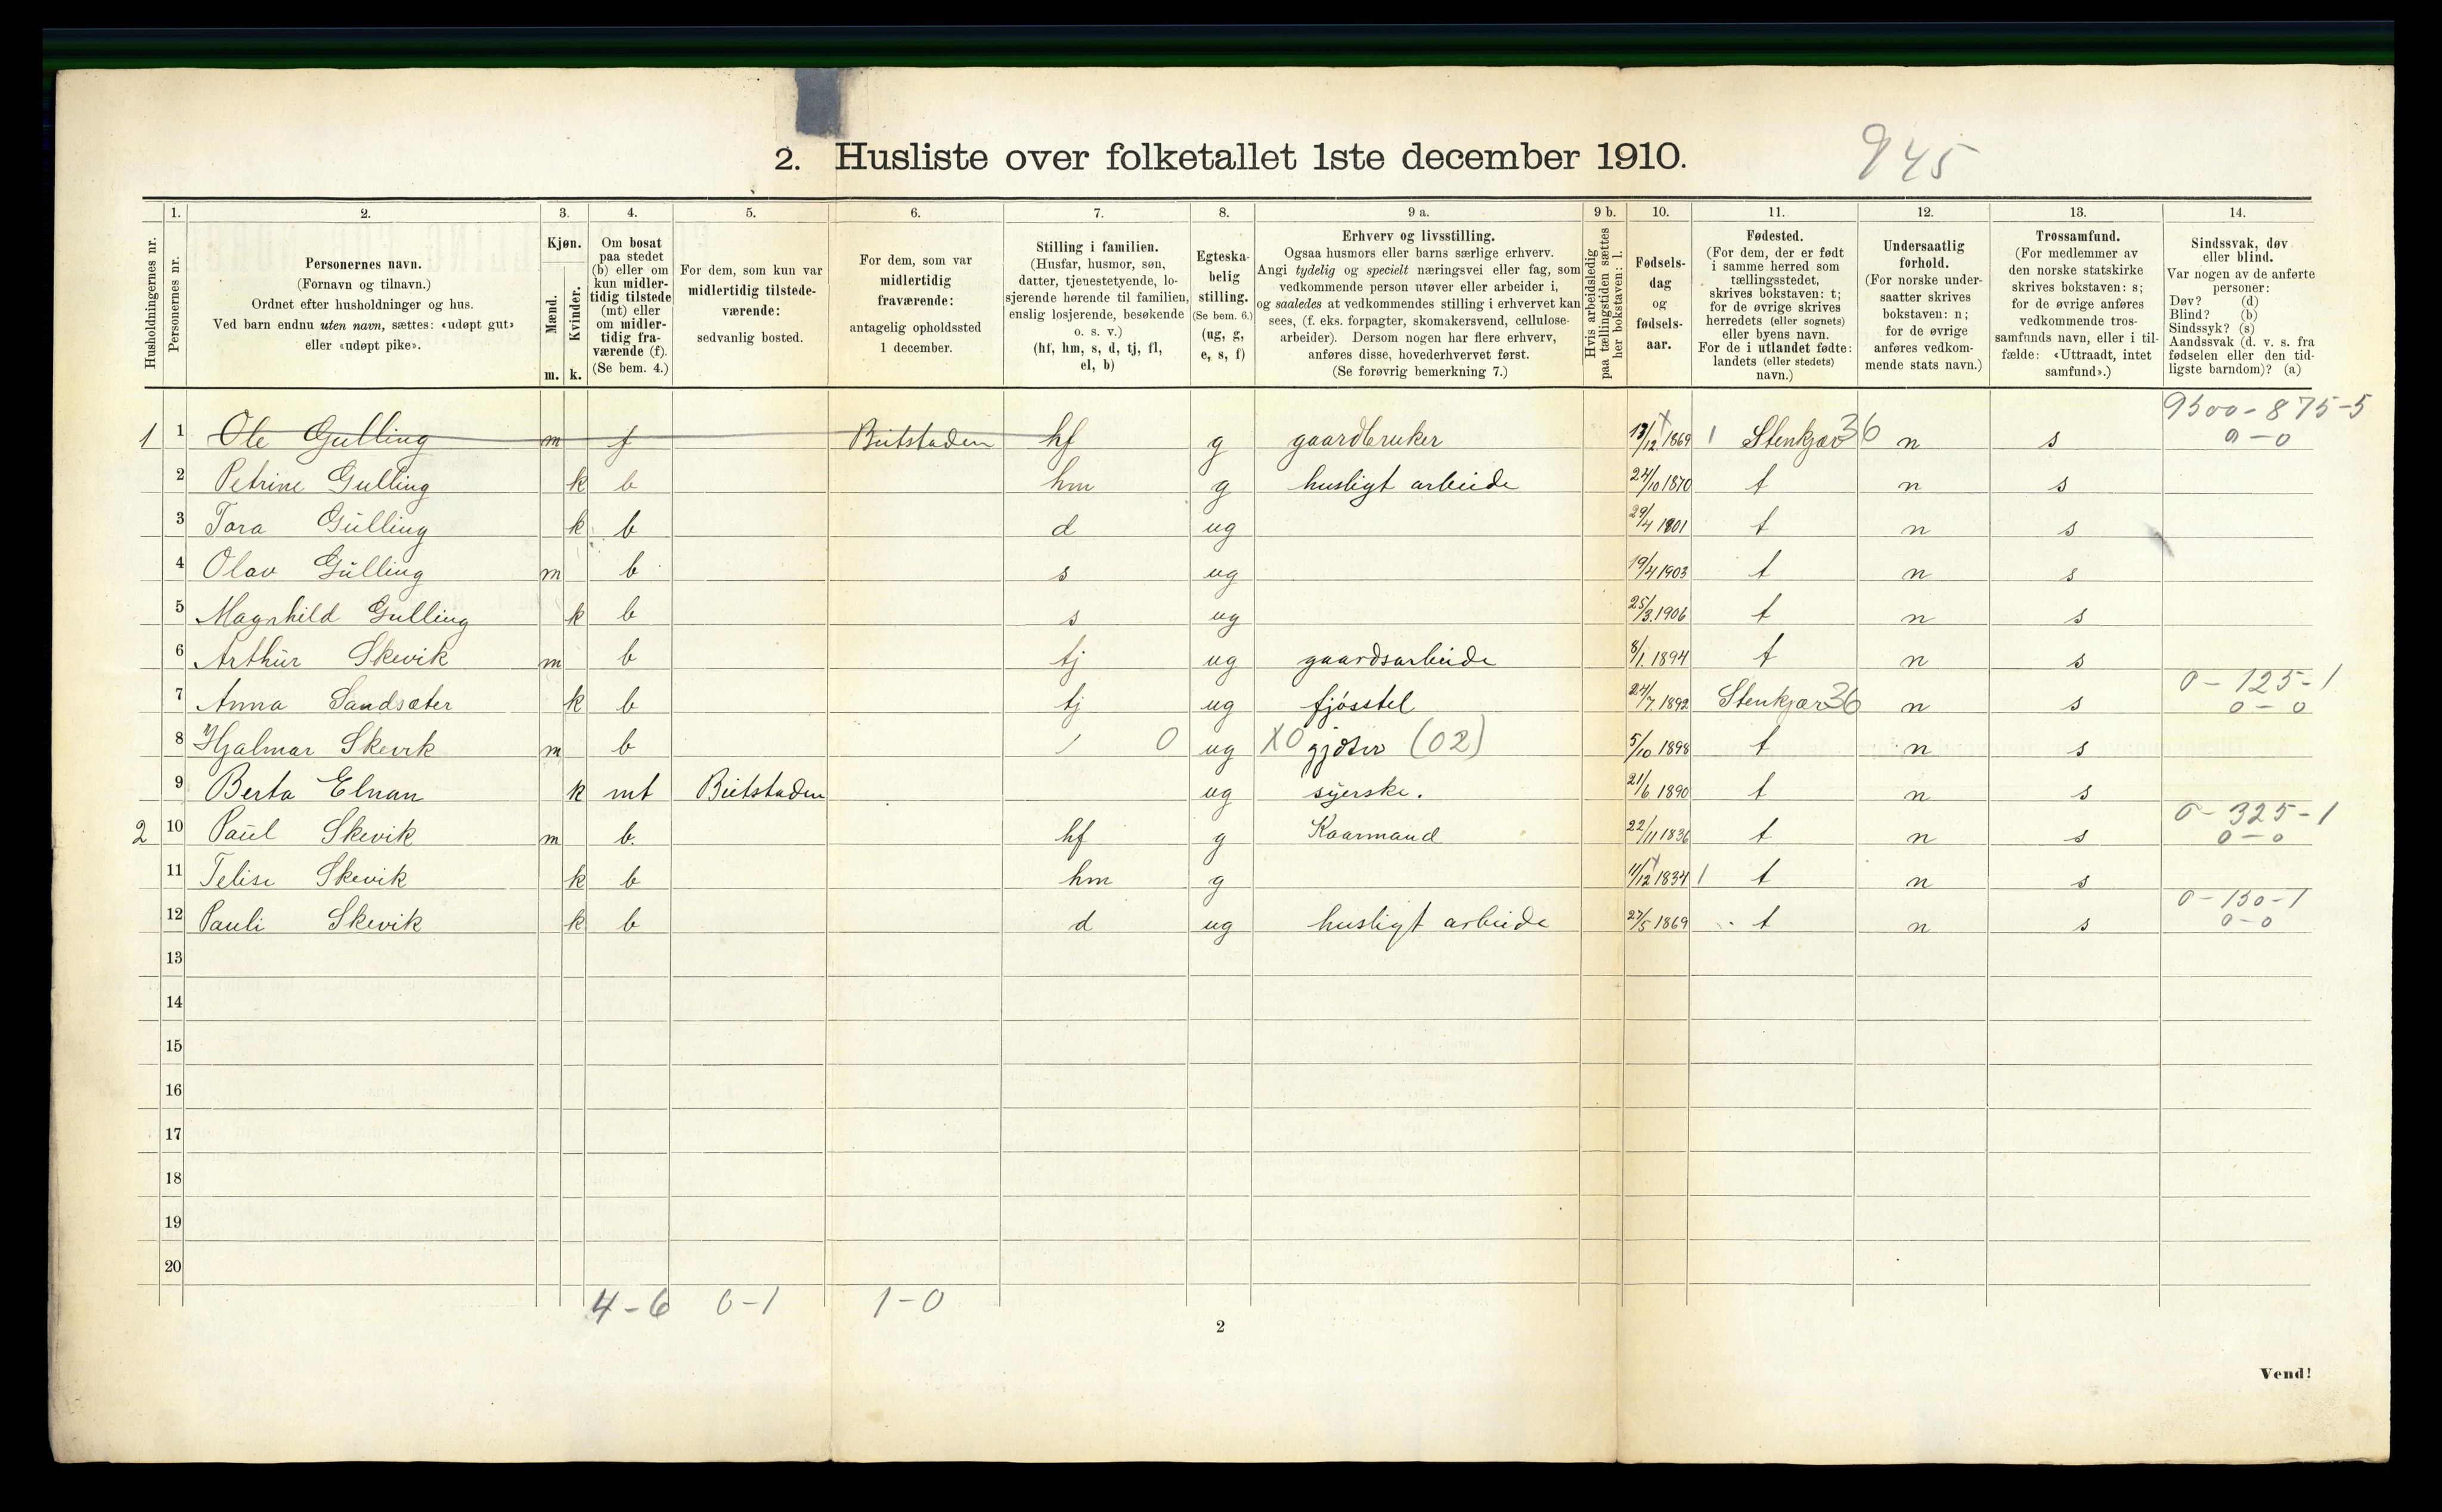 945
2. Husliste over folketallet 1ste december 1910.
Husholdningernes nr.
1.
Personernes nr.
2.
Personernes navn.
(Fornavn og tilnavn.)
Ordnet efter husholdninger og hus.
Ved barn endnu uten navn, sættes: «udøpt gut»
eller «udøpt pike».
3.
Kjøn.
Mænd.
Kvinder.
m. k.
4.
Om bosat
paa stedet
(b) eller om
kun midler-
tidig tilstede
(mt) eller
om midler-
tidig fra-
værende (f).
(Se bem. 4.)
5.
For dem, som kun var
midlertidig tilstede-
værende:
sedvanlig bosted.
6.
For dem, som var
midlertidig
fraværende:
antagelig opholdssted
1 december.
7.
Stilling i familien.
(Husfar, husmor, søn,
datter, tjenestetyende, lo-
sjerende hørende til familien,
enslig losjerende, besøkende
o. s. v.)
(hf, hm, s, d, tj, fl,
el, b)
8.
Egteska-
belig
stilling.
(Se bem. 6.)
(ug, g,
e, s, f)
9 a.
Erhverv og livsstilling.
Ogsaa husmors eller barns særlige erhverv.
Angi tydelig og specielt næringsvei eller fag, som
vedkommende person utøver eller arbeider i,
og saaledes at vedkommendes stilling i erhvervet kan
sees, (f. eks. forpagter, skomakersvend, cellulose-
arbeider). Dersom nogen har flere erhverv,
anføres disse, hovederhvervet først.
(Se forøvrig bemerkning 7.)
9 b.
Hvis arbeidsledig
paa tællingstiden sættes
her bokstaven: l.
10.
Fødsels-
dag
og
fødsels-
aar.
11.
Fødested.
(For dem, der er født
i samme herred som
tællingsstedet,
skrives bokstaven: t;
for de øvrige skrives
herredets (eller sognets)
eller byens navn.
For de i utlandet fødte:
landets (eller stedets)
navn.)
12.
Undersaatlig
forhold.
(For norske under-
saatter skrives
bokstaven: n;
for de øvrige
anføres vedkom-
mende stats navn.)
13.
Trossamfund.
(For medlemmer av
den norske statskirke
skrives bokstaven: s;
for de øvrige anføres
vedkommende tros-
samfunds navn, eller i til-
fælde: «Uttraadt, intet
samfund».)
14.
Sindssvak, døv
eller blind.
Var nogen av de anførte
personer:
Døv? (d)
Blind? (b)
Sindssyk? (s)
Aandssvak (d. v. s. fra
fødselen eller den tid-
ligste barndom)? (a)
9500-875-5
1 1 Ole Gulling m f Beitstaden hf g gaardbruker 13/12 1869 1 Stenkjær 36 n s 0-0
2 Petrine Gulling k b hm g husligt arbeide 24/10 1870 t n s
3 Tora Gulling k b d ug 29/4 1901 t n s
4 Olav Gulling m b s ug 19/4 1903 t n s
5 Magnhild Gulling k b s ug 25/3 1906 t n s
6 Arthur Skevik m b tj ug gaardsarbeide 8/1 1894 t n s
0-125-1
7 Anna Sandsæter k b tj ug fjøsstel 24/7 1892 Stenkjær 36 n s 0-0
8 Hjalmar Skevik m b / 0 ug X0 gjæter (02) 5/10 1898 t n s
9 Berta Elnan k mt Beitstaden ug syerske. 21/6 1890 t n s
0-325-1
2 10 Paul Skevik m b. hf g Kaarmand 22/11 1836 t n s 0-0
11 Telise Skevik k b hm g 11/12 1834 1 t n s
0-150-1
12 Pauli Skevik k b d ug husligt arbeide 27/5 1869 t n s 0-0
13
14
15
16
17
18
19
20
4-6 0-1 1-0
2
Vend!